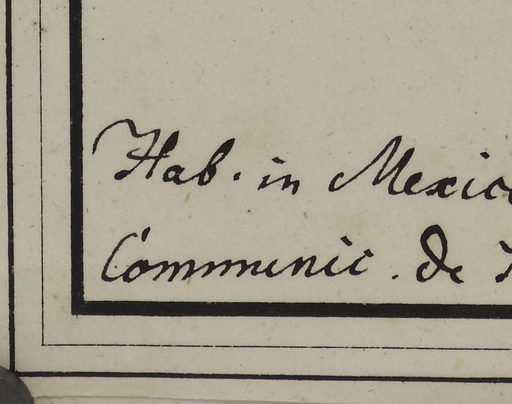 Hab. in Mexico
Communic. De